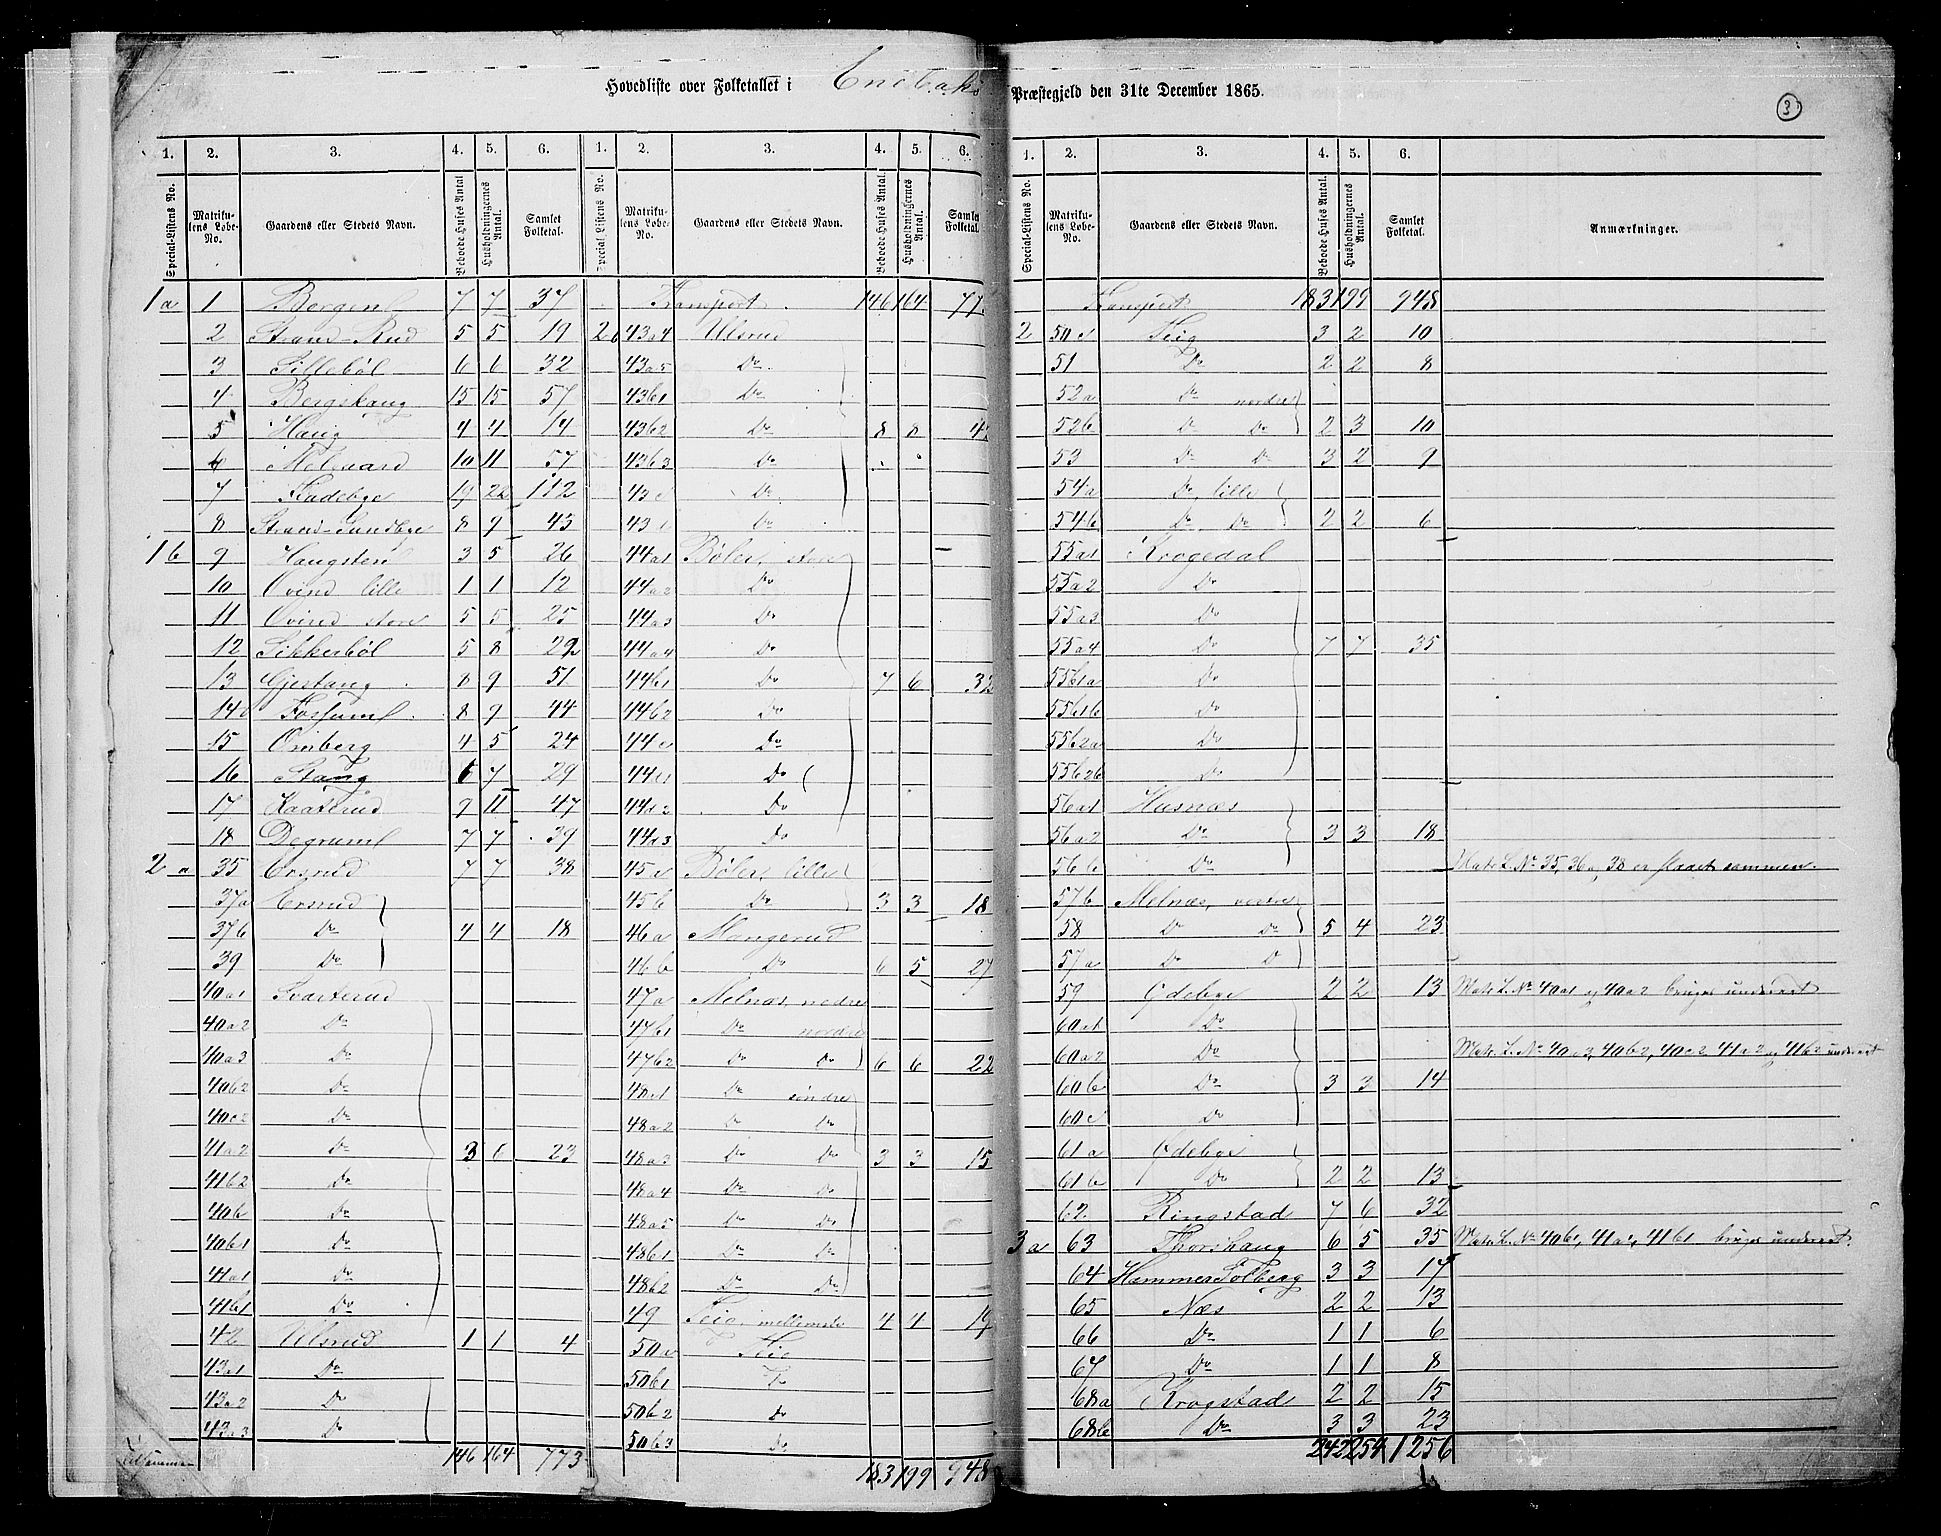 Hovedliste over Folketallet i Enebak Præstegjeld den 31te December 1865.
3
1. 2. 3. 4. 5. 6. 1. 2. 3. 4. 5. 6.
Special-Listens No. Matrikulens Løbe-No. Gaardens eller Stedets Navn. Beboede Huses Antal Husholdningernes Antal. Samlet Folketal. Special-Listens No. Matrikulens Løbe-No. Gaardens eller Stedets Navn. Beboede Huses Antal. Husholdningernes Antal. Samlet Folketal.
1a 1 7 7 37
2 Strand-Rud 5 5 19
3 Sillebøl 6 6 32
4 Bergskaug 15 15 57
5 Haug 4 4 14
6 10 11 57
7 Fladebye 19 22 112
8 Strand-Sundbye 8 9 45
1b 9 Haugsten 3 5 26
10 Øvind lille 1 1 12
11 Øvind store 5 5 25
12 Sikkerbøl 5 8 29
13 Gjestang 8 9 51
14 8 9 44
15 Omberg 4 5 24
16 Stang 6 7 29
17 9 11 47
18 Degrum 7 7 39
2a 35 Ersrud 7 7 38
37a Ersrud
37b Do 4 4 18
39 Do
40a1 Svarterud
40a2 Do
40a3 Do
40b2 Do
40c2 Do
41a2 Do 3 6 23
41b2 Do
40b Do
40b1 Do
41a1 Do
41b1 Do
42 Ulsrud 1 1 4
43a1 Do
43a2 Do
43a3 Do
146 164 773
Transport 146 164 77
2b 43a4 Ulsrud
43a5 Do
43b1 Do
43b2 Do 8 8
43b3 Do
43c Do
43 Do
44a1 Bøler, store
44a2 Do
44a3 Do
44a4 Do
44b1 Do 7 6 32
44b2 Do
44c Do
44 Do
44 2 Do
44 3 Do
45a Bøler, lille
45b Do 3 3 18
46a Mangerud
46b Do 6 5 27
47a Melnæs, nedre
47b1 Do nordre
47b2 Do Do 6 6 22
48a1 Do søndre
48a2 Do Do
48a3 Do Do 3 3 15
48a4 Do Do
48a5 Do Do
48b1 Do Do
48b2 Do Do
49 Teig, mellemste 4 4 19
50a Teig
50b1
50b2 Do
50b3 Do
183 199 948
1. 2. 3. 4. 5. 6.
Special-Listens No. Matrikulens Løbe-No. Gaardens eller Stedets Navn. Beboede Huses Antal. Husholdningernes Antal. Samlet Folketal. Anmærkninger.
Transport 183 199 948
2 50c Teig 3 2 10
51 Do 2 2 8
52a Do nordre
52b Do Do 2 3 10
53 Do Do 3 2 9
54a Do lille
54b Do Do 2 2 6
55a1 Krogedal
55a2 Do
55a3 Do
55a4 Do 7 7 35
55b1a Do
55b1b Do
55b2a Do
55b2b Do
56a1 Husnæs
56a2 Do 3 3 18
56b Do Matr. L. No 35, 36 og 38 er slaaet sammen.
57b Melnæs, vestre
58 Do Do 5 4 23
57a Do Do
59 Ødebye 2 2 13 Matr. L. No 40a1 og 40a2 bruges underet
60a1 Do
60a2 Do Matr. L. No 40a3, 40b2, 40c2, 41a2 og 41b2 underet
60b Do 3 3 14
60c Do
61a Ødebye
61b Do 2 2 13
62 Ringstad 7 6 32
3a 63 Thorshaug 6 5 35 Matr. L. No 40b1, 41a1, 41b1 bruges underet.
64 Hammer Tolberg 3 3 17
65 Næs 2 2 13
66 Do 1 1 6
67 Do 1 1 8
68a Krogstad 2 2 15
68b Do 3 3 23
242 254 1256